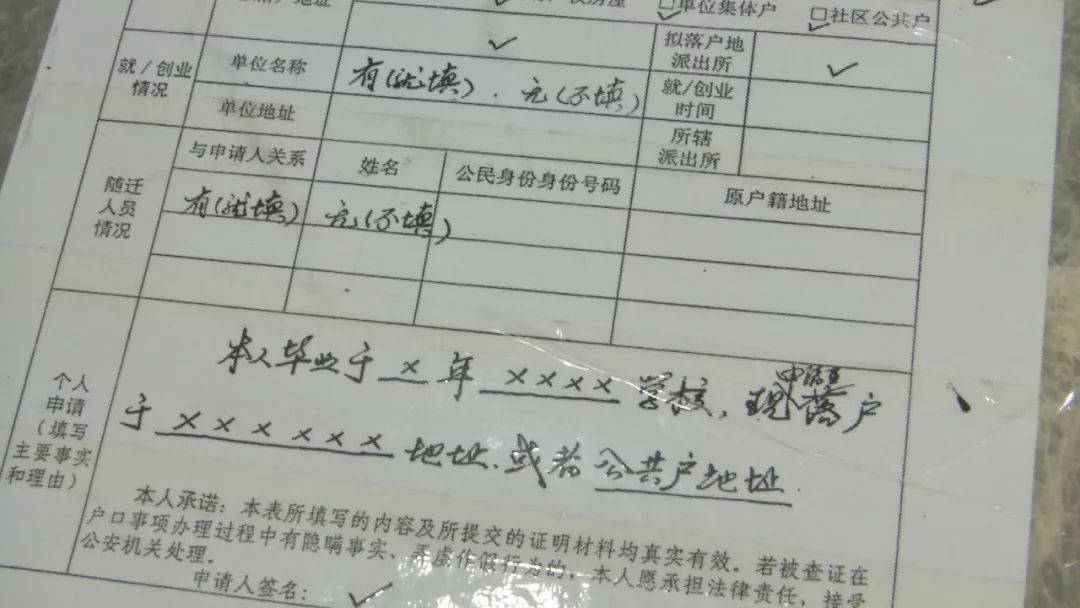 户地址 ☐单位集体户 ☐社区公共户
拟落户地
派出所
就/创业
情况
单位名称 有(就填)、无(不填)
就/创业
时间
单位地址
所辖
派出所
随迁
人员
情况
与申请人关系 姓名 公民身份身份号码 原户籍地址
有(就填) 无(不填)
个人
申请
(填写
主要事实
和理由)
本人毕业于 × 年 ×××× 学校,现申请落户
于 ×××××× 地址、或者公共户地址
本人承诺:本表所填写的内容及所提交的证明材料均真实有效。若被查证在
户口事项办理过程中有隐瞒事实、弄虚作假行为的,本人愿承担法律责任,接受
公安机关处理。
申请人签名: